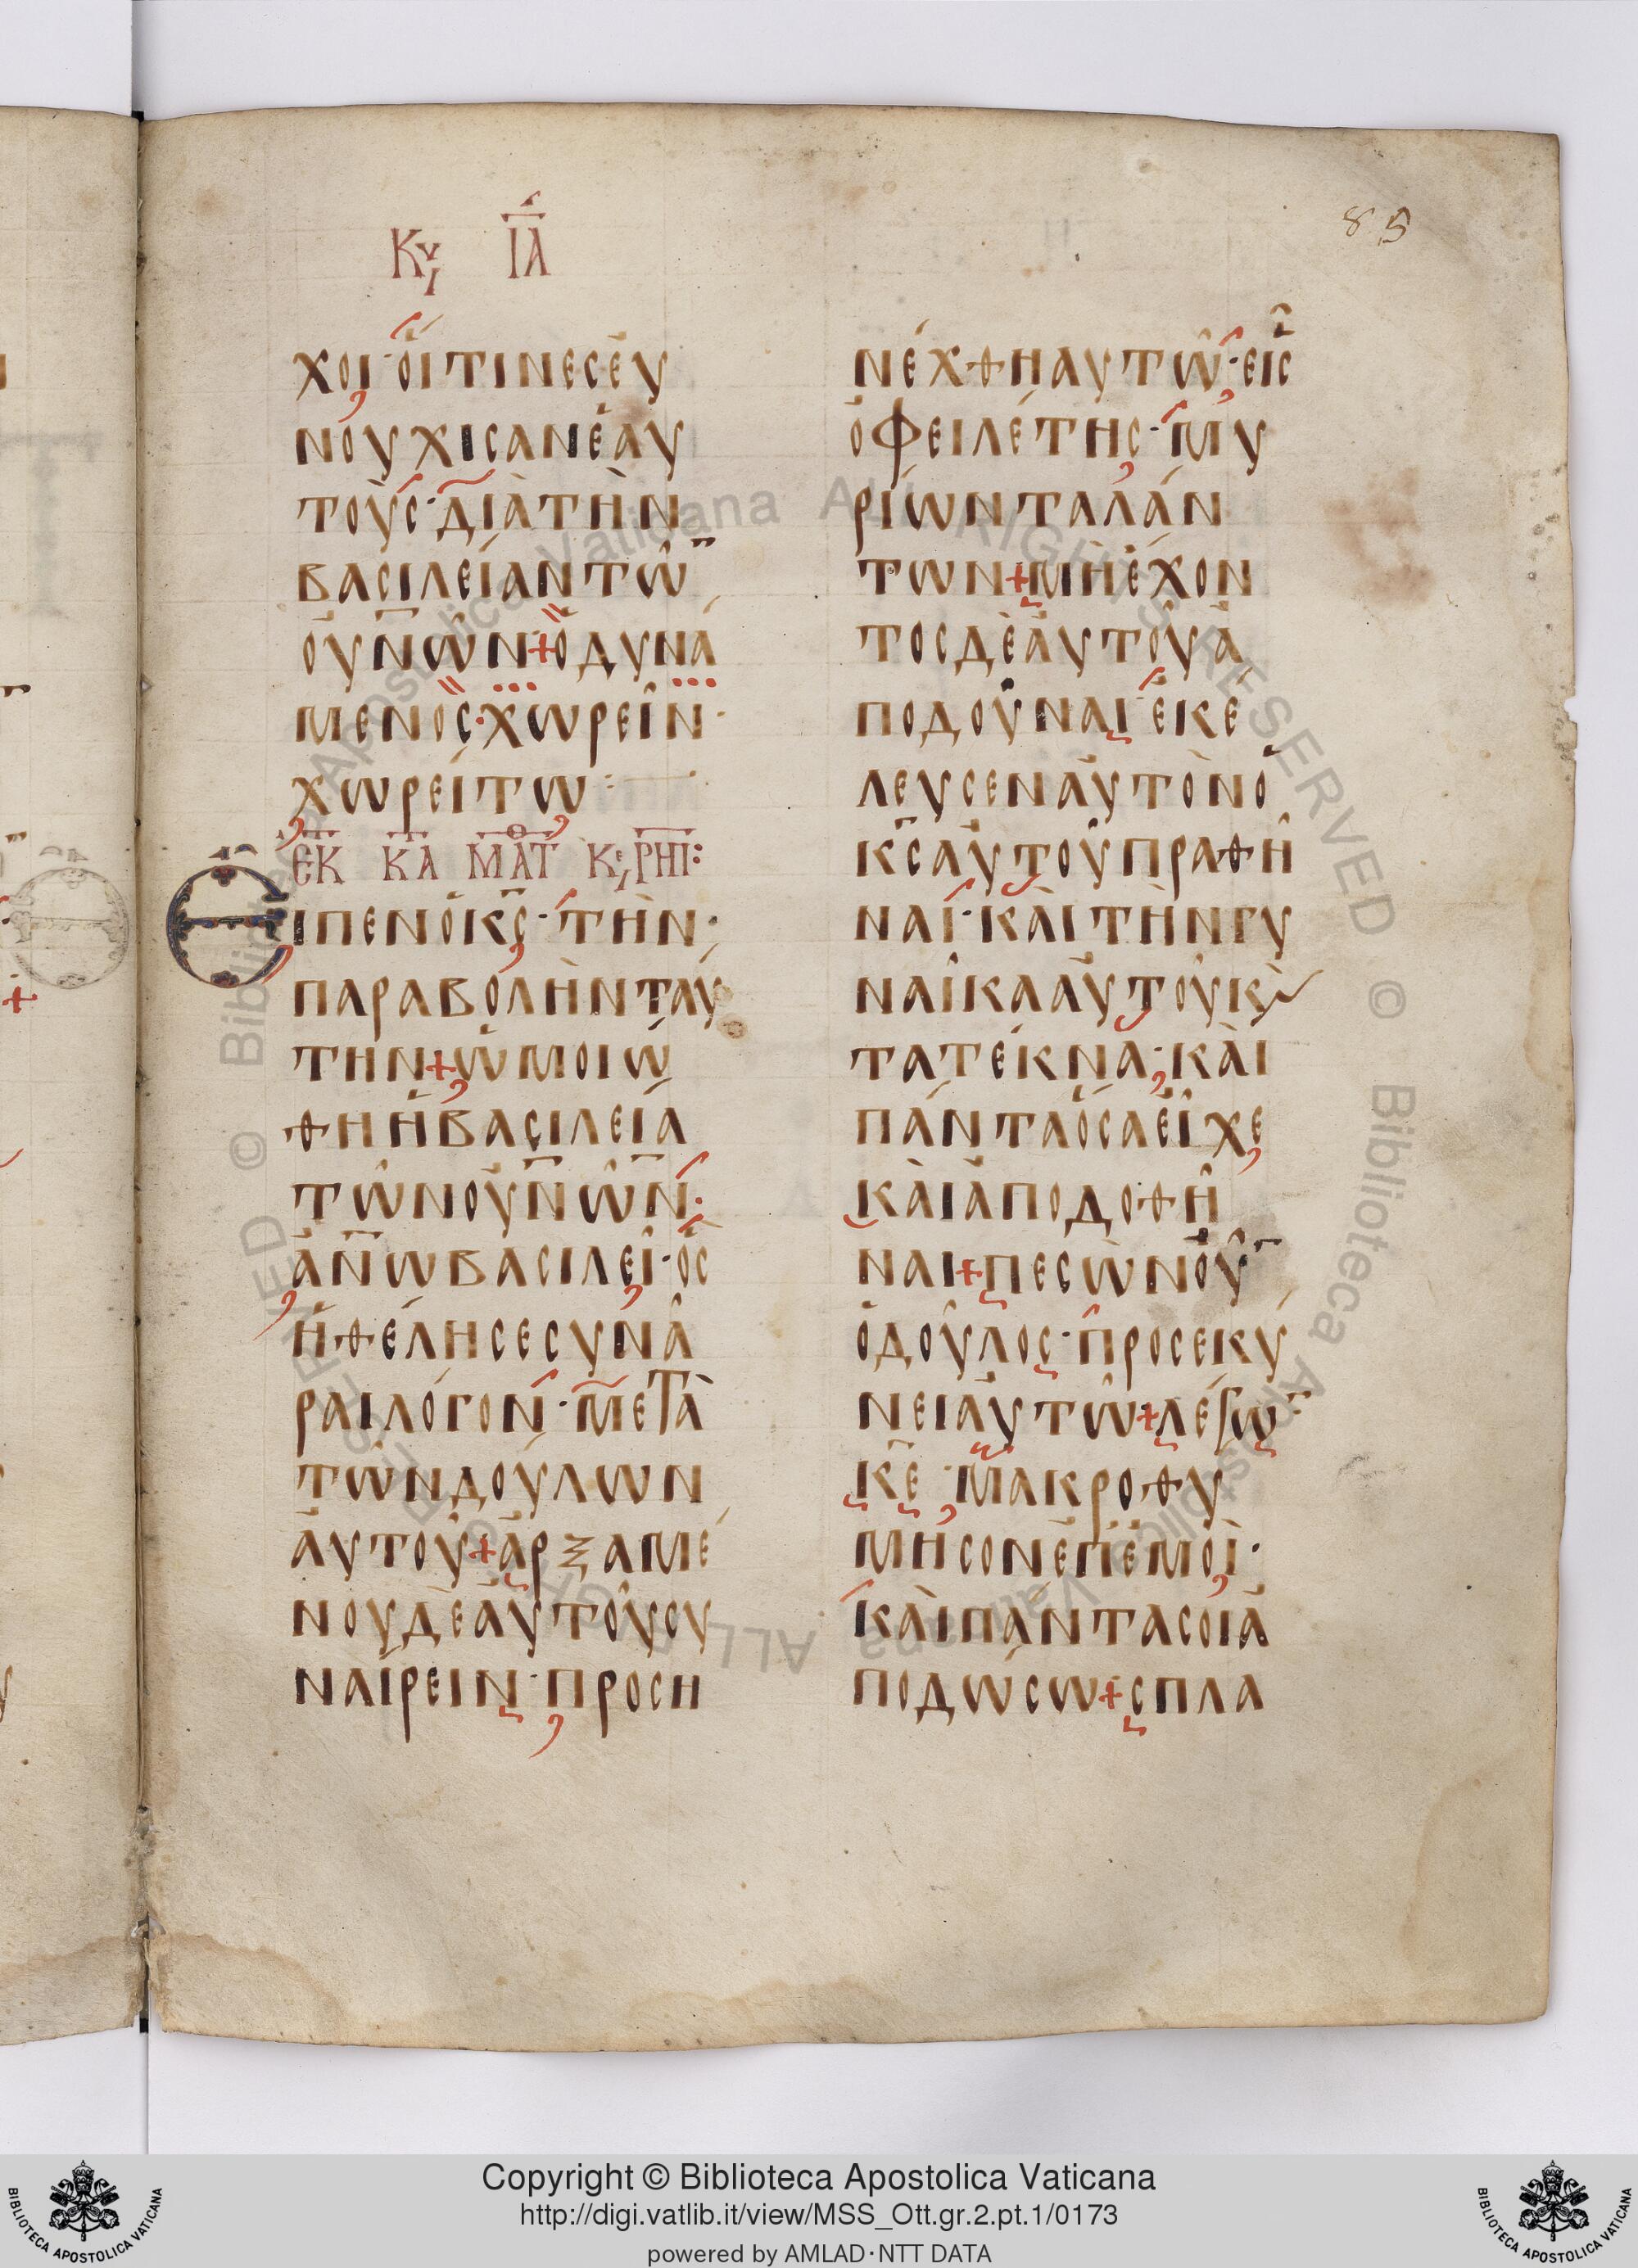 85
Κυ ΙΑ
ΧΟΙ· ΟΙΤΙΝΕΣ ΕΥ
ΝΟΥΧΙΣΑΝ ΕΑΥ
ΤΟΥΣ· ΔΙΑ ΤΗΝ
ΒΑΣΙΛΕΙΑΝ ΤΩ̅
ΟΥΝ̅ΩΝ + Ο ΔΥΝΑ
ΜΕΝΟΣ· ΧΩΡΕΙΝ·
ΧΩΡΕΙΤΩ:
ΕΚ ΚΑ ΜΑΤΘ Κε, ΡΗΙ:
ΕΙΠΕΝ Ο Κ̅Σ· ΤΗΝ
ΠΑΡΑΒΟΛΗΝ ΤΑΥ
ΤΗΝ + ΩΜΟΙΩ
ΘΗ Η ΒΑΣΙΛΕΙΑ
ΤΩΝ ΟΥΝ̅ΩΝ:
ΑΝ̅Ω ΒΑΣΙΛΕΙ· ΟΣ
ΗΘΕΛΗΣΕ ΣΥΝΑ
ΡΑΙ ΛΟΓΟΝ· ΜΕΤΑ
ΤΩΝ ΔΟΥΛΩΝ
ΑΥΤΟΥ + ΑΡΞΑΜΕ
ΝΟΥ ΔΕ ΑΥΤΟΥ ΣΥ
ΝΑΙΡΕΙΝ· ΠΡΟΣΗ
ΝΕΧΘΗ ΑΥΤΩ· ΕΙΣ
ΟΦΕΙΛΕΤΗΣ· ΜΥ
ΡΙΩΝ ΤΑΛΑΝ
ΤΩΝ + ΜΗ ΕΧΟΝ
ΤΟΣ ΔΕ ΑΥΤΟΥ Α
ΠΟΔΟΥΝΑΙ· ΕΚΕ
ΛΕΥΣΕΝ ΑΥΤΟΝ Ο
Κ̅Σ ΑΥΤΟΥ ΠΡΑΘΗ
ΝΑΙ· ΚΑΙ ΤΗΝ ΓΥ
ΝΑΙΚΑ ΑΥΤΟΥ Κ̀
ΤΑ ΤΕΚΝΑ· ΚΑΙ
ΠΑΝΤΑ ΟΣΑ ΕΙΧΕ
ΚΑΙ ΑΠΟΔΟΘΗ
ΝΑΙ + ΠΕΣΩΝ ΟΥ̅
Ο ΔΟΥΛΟΣ· ΠΡΟΣΕΚΥ
ΝΕΙ ΑΥΤΩ + ΛΕΓΩ̅
Κ̅Ε ΜΑΚΡΟΘΥ
ΜΗΣΟΝ ΕΠ ΕΜΟΙ·
ΚΑΙ ΠΑΝΤΑ ΣΟΙ Α
ΠΟΔΩΣΩ + ΣΠΛΑ
Copyright © Biblioteca Apostolica Vaticana
http://digi.vatlib.it/view/MSS_Ott.gr.2.pt.1/0173
powered by AMLAD·NTT DATA
BIBLIOTECA APOSTOLICA VATICANA
BIBLIOTECA APOSTOLICA VATICANA